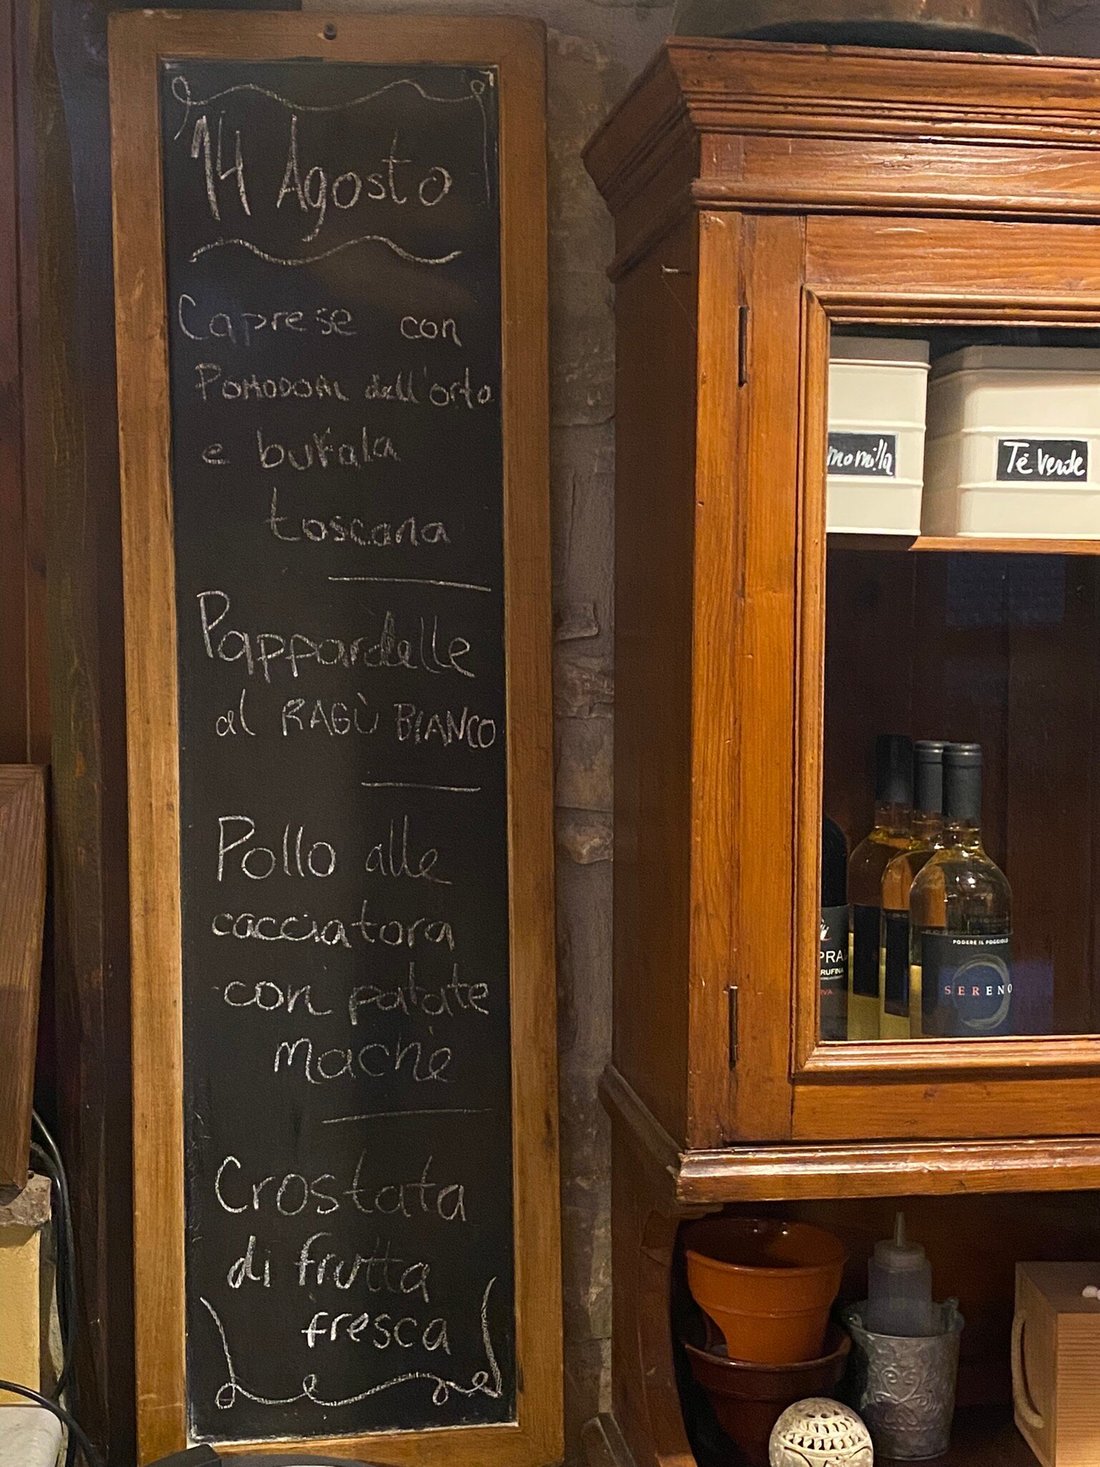 14 Agosto
Caprese con
POMODORI dell'orto
e bufala
toscana
Pappardelle
al RAGÙ BIANCO
Pollo alle
cacciatora
con patate
machè
Crostata
di frutta
fresca
momilla
Tè verde
PRA
RUFINA
PODERE IL POGGIOLO
SERENO